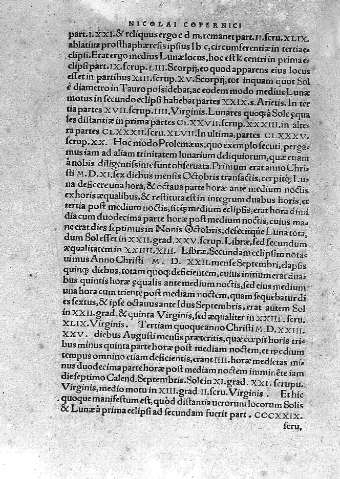 NICOLAI COPERNICI
part. I. XXI. & reliquus ergo e d m. remanet part. II. scru. XLIX.
ablatiua prosthaphæresis ipsius l b c, circumferentiæ in tertia e-
clipsi. Erat ergo medius Lunæ locus, hoc est k centri in prima e-
clipsi part. IX. scrup. LIII. Scorpij, eo quod apparens eius locus
esset in partibus XIII. scrup. XV. Scorpij, tot inquam quot Sol
è diametro in Tauro possidebat, ac eodem modo mediũ Lunæ
motus in secunda eclipsi habebat partes XXIX. s. Arietis. In ter
tia partes XVII. scrup. IIII. Virginis. Lunares quoq; à Sole æqua
les distantiæ in prima partes CLXXVII. scru. XXXIII. in alte-
ra partes CLXXXII. scru. XLVII. In ultima, partes CLXXXV.
scrup. XX. Hoc modo Ptolemæus, quo exemplo secuti, perga-
mus iam ad aliam trinitatem lunarium deliquiorum, quæ etiam
à nobis diligentissime sunt obseruata. Primum erat anno Chri-
sti M. D. XI. sex diebus mensis Octobris transactis, cœpitq; Lu-
na deficere una hora, & octaua parte horæ ante medium noctis
ex horis æqualibus, & restituta est in integrum duabus horis, et
tertia post medium noctis, sicq; medium eclipsis, erat hora dimi
dia cum duodecima parte horæ post medium noctis, cuius ma-
ne erat dies septimus in Nonis Octobris, defecitque Luna tota,
dum Sol esset in XXII. grad. XXV. scrup. Libræ, sed secundum
æqualitatem in XXIIII. XIII. Libræ. Secundam eclipsim nota-
uimus Anno Christi M. D. XXII. mense Septembri, elapsis
quinq; diebus, totam quoq; deficientem, cuius initium erat dua-
bus quintis horæ æqualis ante medium noctis, sed eius medium
una hora cum triente post mediam noctem, quam sequebatur di
es sextus, & ipse octauus ante Idus Septembris, erat autem Sol
in XXII. grad. & quinta Virginis, sed æqualiter in XXIII. scru.
XLIX. Virginis. Tertiam quoque anno Christi M. D. XXIII.
XXV. diebus Augusti mensis præteritis, quæ cœpit horis tri-
bus minus quinta parte horæ post medium noctis, et medium
tempus omnino etiam deficientis, erat IIII. horæ medietas mi-
nus duodecima parte horæ post mediam noctem imminente iam
die septimo Calend. Septembris. Sol in XI. grad. XXI. scrup.
Virginis, medio motu in XIII. grad II. scru. Virginis. Et hic
quoque manifestum est, quod distantia uerorum locorum Solis
& Lunæ à prima eclipsi ad secundam fuerit part. CCCXXIX.
scru,